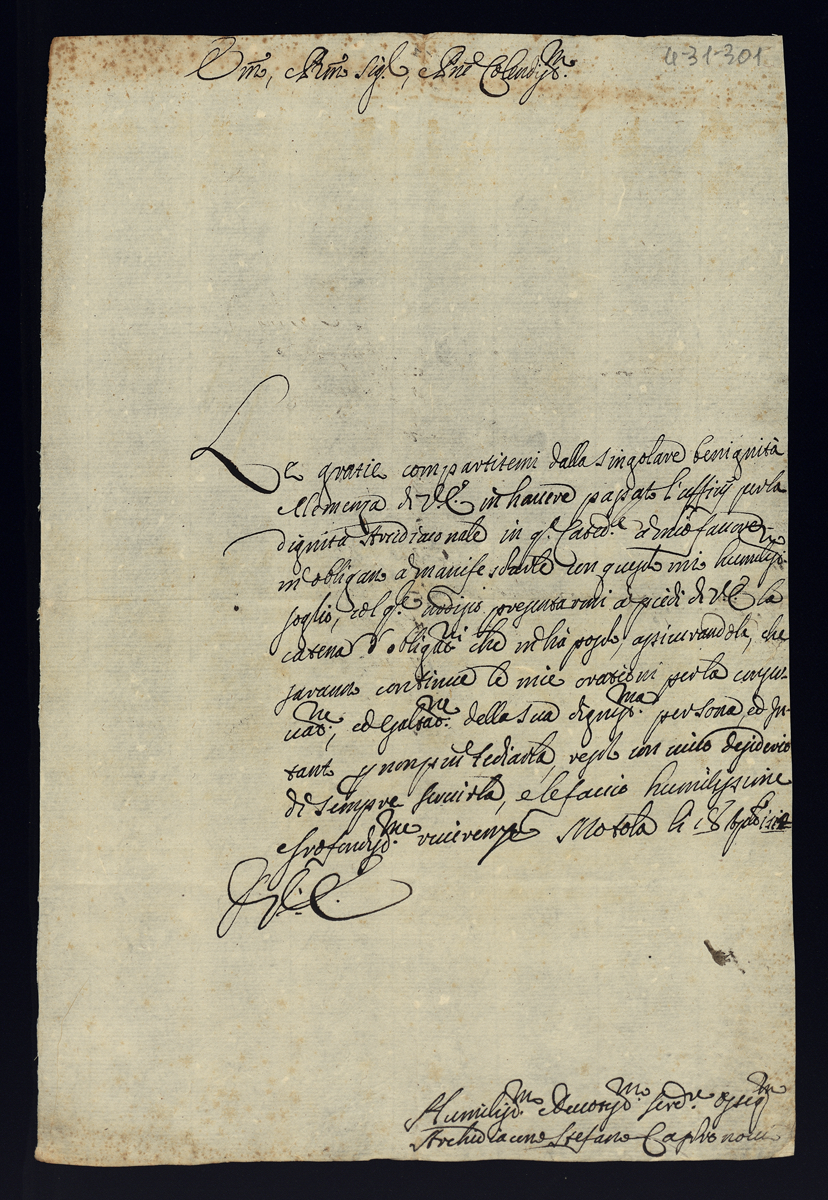 Em.mo, Rm.o Sig.re, P.ne Colendiss.mo
4-31-301
Le gratie compartitemi dalla singolare benignità
e clemenza di V.E. in havere passat l'ufficij per la
dignità Arcidiaconale in q.a Cated.le a mio favore
m'obligano a manifestarle con questo mi humiliss.
foglio, col q.le ardisco presentarmi a piedi di V.E. la
catena d'oblig.ni che m'ha posto, assicurandola, che
saranno continue le mie orationi per la conser-
vat.ne, ed esaltat.ne della sua digniss.ma persona, ed in-
tanto p non più tediarla, resto con vivo desiderio
di sempre servirla, e le faccio humilissime
e profondiss.me riverenze Motola li 18
Di V.E.
Humiliss.mo Devotiss.mo ser.re osseq.mo
Archidiacono Stefano